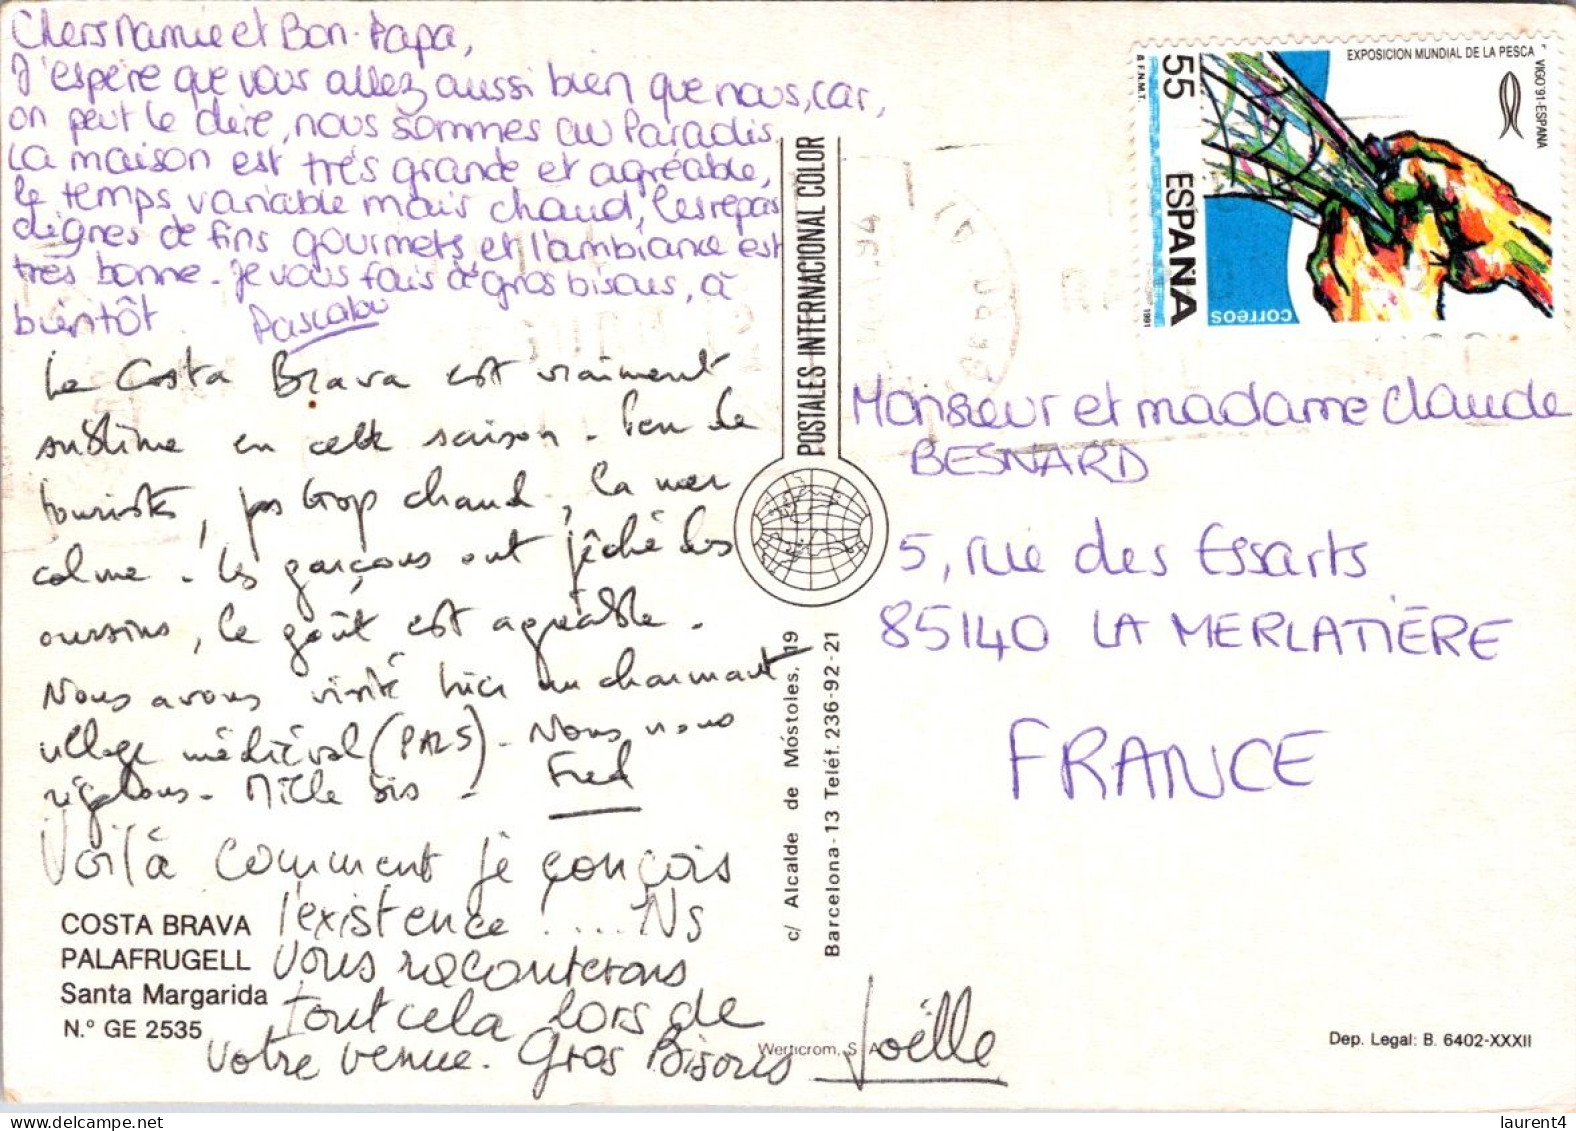 Chers Mamie et Bon-Papa,
J'espère que vous allez aussi bien que nous, car,
on peut le dire, nous sommes au Paradis.
La maison est très grande et agréable,
le temps variable mais chaud, les repas
dignes de fins gourmets, et l'ambiance est
très bonne. Je vous fais de gros bisous, à
bientôt. Pascalou
La Costa Brava est vraiment
sublime en cette saison. Peu de
touristes, pas trop chaud, la mer
calme. Les garçons ont pêché des
oursins, le goût est agréable.
Nous avons visité hier un charmant
village médiéval (PALS). Nous nous
régalons. Mille bis. Fred
Voilà comment je conçois
l'existence !.... Ns
vous raconterons
tout cela lors de
votre venue. Gros Bisous Joëlle
COSTA BRAVA
PALAFRUGELL
Santa Margarida
N.º GE 2535
POSTALES INTERNACIONAL COLOR
c/ Alcalde de Móstoles, 19
Barcelona-13 Teléf. 236-92-21
Werticrom, S. A.
EXPOSICION MUNDIAL DE LA PESCA
VIGO'91-ESPAÑA
55
ESPAÑA
& F.N.M.T.
1991
correos
Monsieur et madame Claude
BESNARD
5, rue des Essarts
85140 LA MERLATIÈRE
FRANCE
Dep. Legal: B. 6402-XXXII
laurent4